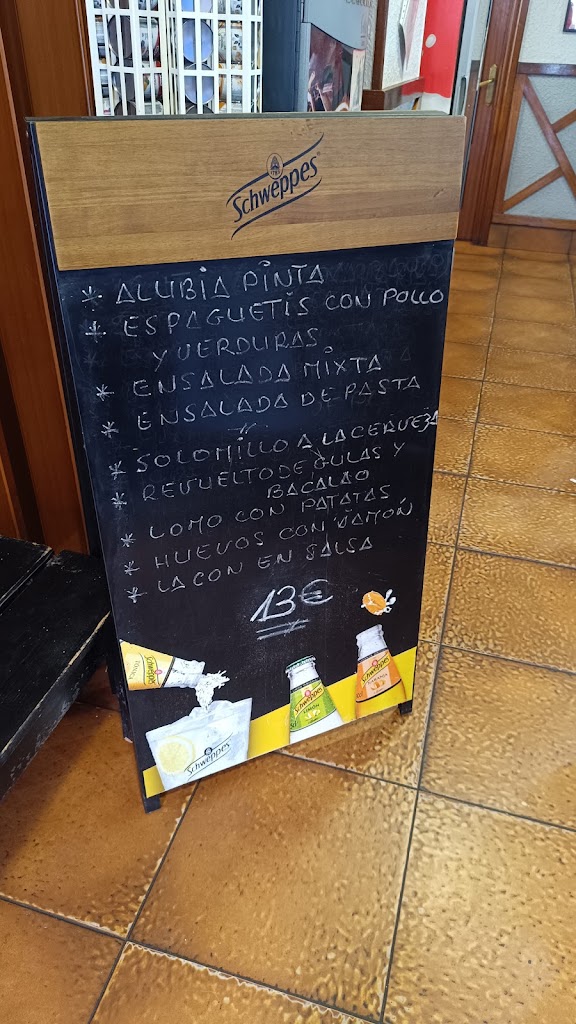 Schweppes
* ALUBIA PINTA
* ESPAGUETIS CON POLLO
Y VERDURAS
* ENSALADA MIXTA
* ENSALADA DE PASTA
* SOLOMILLO A LA CERVEZA
* REVUELTO DE GULAS Y
BACALAO
LOMO CON PATATAS
* HUEVOS CON JAMÓN
* LACON EN SALSA
13€
Schweppes
Schweppes
Schweppes
Schweppes